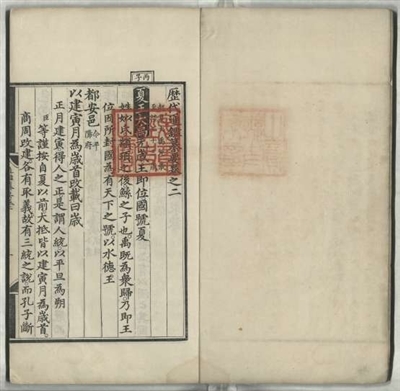 歷代通鑑纂要卷之二
丙子
夏王大禹元歲王即位國號夏
姓姒氏顓頊之後鯀之子也禹既為衆歸乃即王
位因所封國為有天下之號以水德王
都安邑
以建寅月為歲首改載曰歲
正月建寅得人之正是謂人統以平旦為朔
臣等謹按自夏以前大抵皆以建寅月為歲首
商周改建各有取義故有三統之說而孔子斷